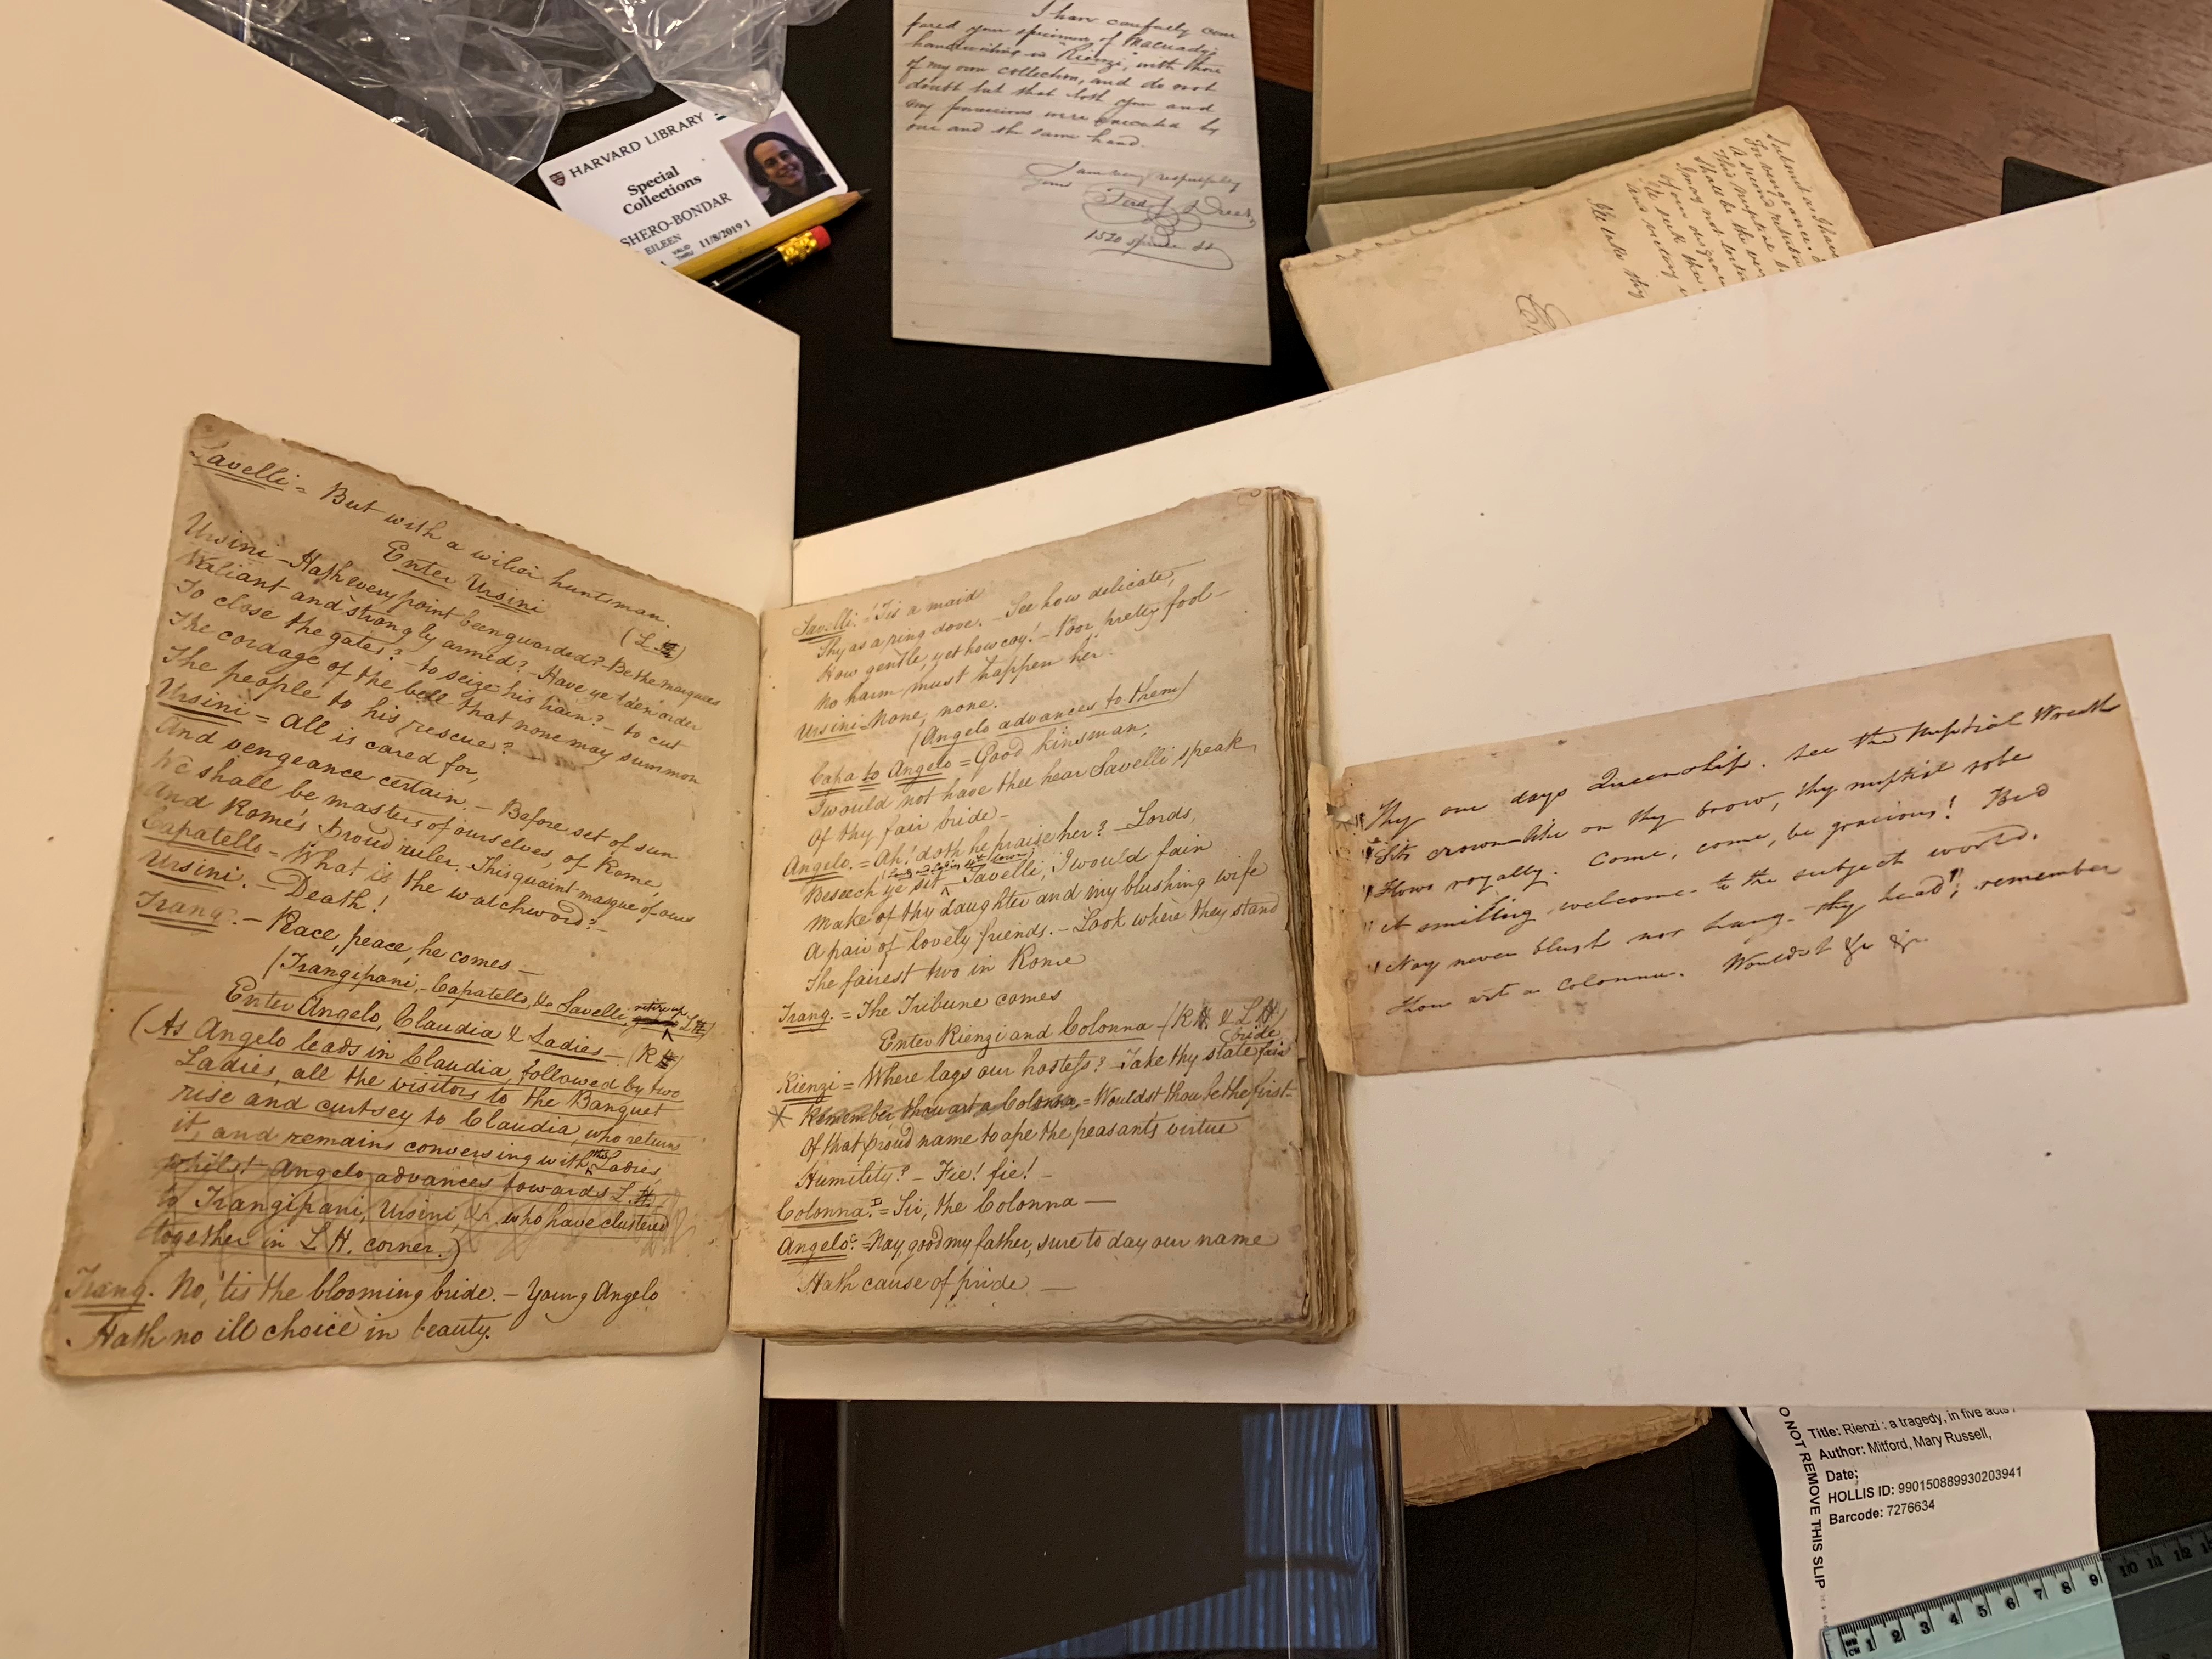 I have carefully com
pared your specimen of Macready's
handwriting in "Rienzi", with those
of my own collection, and do not
doubt but that both your and
my possessions were executed by
one and the same hand.
I am very respectfully
Yours
1520 Spruce St
HARVARD LIBRARY
Special
Collections
SHERO-BONDAR
EILEEN
VALID
THRU
11/8/2019 1
For vengeance
Shall be the
I may not
We seek
and victory
He
Savelli = But with a wilier huntsman.
Enter Ursini
(L H)
Ursini - Hath every point been guarded? - Be the masquers
Valiant and strongly armed? - Have ye ta'en order
To close the gates? - to seize his train? - to cut
The cordage of the bell that none may summon
The people to his rescue?
Ursini = All is cared for,
And vengeance certain. - Before set of sun
We shall be masters of ourselves, of Rome,
And Rome's proud ruler. This quaint masque of ours
Capatello = What is the watchword? -
Ursini. - Death!
Frang. - Peace, peace, he comes -
(Frangipani, - Capatello, & Savelli, retire up L H)
Enter Angelo, Claudia & Ladies - (R H)
(As Angelo leads in Claudia, followed by two
Ladies, all the visitors to the Banquet
rise and curtsey to Claudia, who return
it, and remains conversing with the Ladies,
whilst Angelo advances towards L. H.
to Frangipani, Ursini, &c. who have clustered
together in L H. corner.)
Frang. No, 'tis the blooming bride. - Young Angelo
Hath no ill choice in beauty.
Savelli. 'Tis a maid
Shy as a ring dove. - See how delicate,
How gentle, yet how coy! - Poor pretty fool -
No harm must happen her.
Ursini. None, none.
(Angelo advances to them)
Capa to Angelo = Good kinsman,
I would not have thee hear Savelli speak
Of thy fair bride -
Angelo. = Ah! doth he praise her? - Lords,
Beseech ye sit - Savelli, I would fain
Make of thy daughter and my blushing wife
A pair of lovely friends. - Look where they stand
The fairest two in Rome
Frang. = The Tribune comes
Enter Rienzi and Colonna - (R H & L H)
bride
Rienzi = Where lags our hostess? - Take thy state fair
Remember thou art a Colonna = Wouldst thou be the first
Of that proud name to ape the peasants virtue
Humility? - Fie! fie! -
Colonna. = Sir, the Colonna -
Angelo = Nay, good my father, sure to day our name
Hath cause of pride -
"Thy one days Queenship. See the Nuptial Wreath
"Sits crown-like on thy brow, thy nuptial robe
"Flows royally. Come, come, be gracious! Bid
"A smiling welcome to the subject world.
"Nay never blush nor hang thy head"; remember
Thou art a Colonna. Wouldst &c &c.
O NOT REMOVE THIS SLIP
Title: Rienzi : a tragedy, in five acts /
Author: Mitford, Mary Russell,
Date:
HOLLIS ID: 990150889930203941
Barcode: 7276634
MM
CM 1 2 3 4 5 6 7 8 9 10 11 12